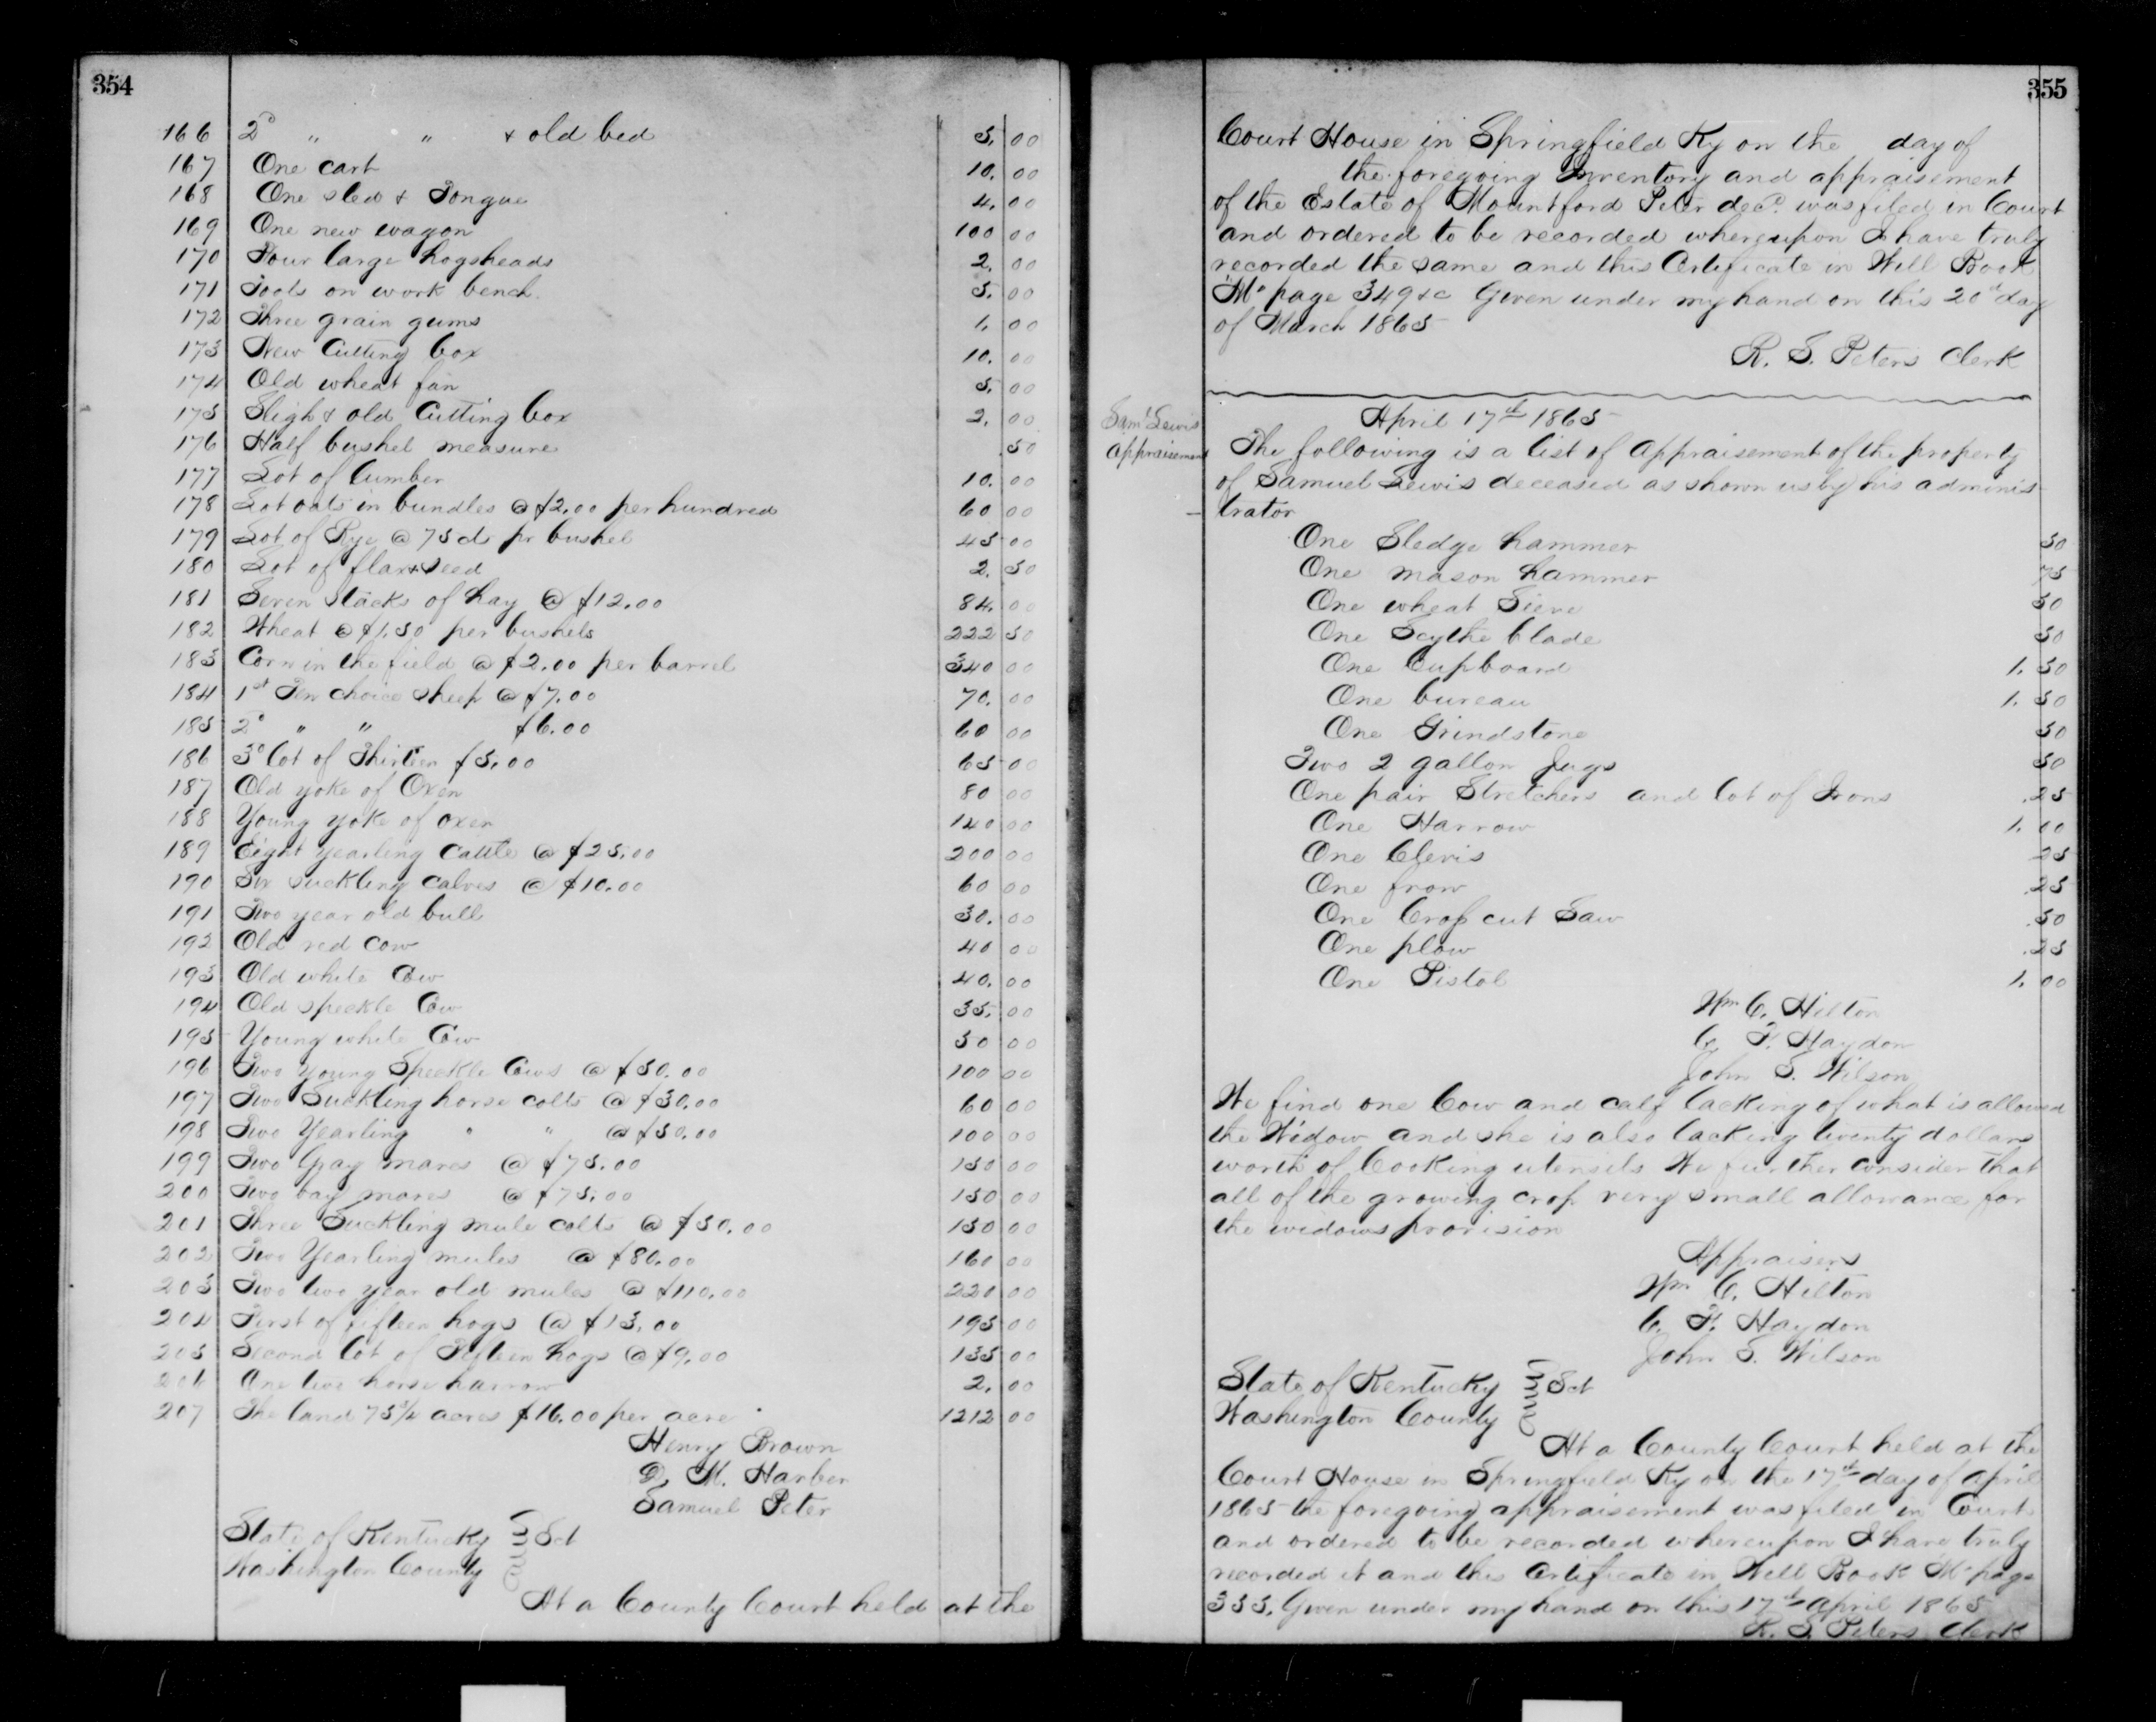 354
166 2d " " & old bed 5.00
167 One cart 10.00
168 One sled & Tongue 4.00
169 One new wagon 100 00
170 Four large hogsheads 2.00
171 Tools on work bench. 5.00
172 Three grain gums 1.00
173 New Cutting box 10.00
174 Old wheat fan 5.00
175 Sligh & old Cutting box 2.00
176 Half bushel measure .50
177 Lot of lumber 10.00
178 Lot oats in bundles @ $2.00 per hundred 60 00
179 Lot of Rye @ 75 cts pr bushel 45 00
180 Lot of flax seed 2.50
181 Seven stacks of hay @ $12.00 84.00
182 Wheat @ $1.50 per bushels 222 50
183 Corn in the field @ $2.00 per barrel 340 00
184 1st Ten choice sheep @ $7.00 70.00
185 2d " " $6.00 60 00
186 3d lot of Thirteen $5.00 65 00
187 Old yoke of Oxen 80 00
188 Young yoke of oxen 140 00
189 Eight yearling cattle @ $25.00 200 00
190 Six suckling calves @ $10.00 60 00
191 Two year old bull 30.00
192 Old red cow 40 00
193 Old white Cow 40.00
194 Old speckle Cow 35.00
195 Young white Cow 50 00
196 Two young Speckle Cows @ $50.00 100 00
197 Two Suckling horse colts @ $30.00 60 00
198 Two Yearling " " @ $50.00 100 00
199 Two Gray mares @ $75.00 150 00
200 Two bay mares @ $75.00 150 00
201 Three Suckling mule colts @ $50.00 150 00
202 Two Yearling mules @ $80.00 160 00
203 Two two year old mules @ $110.00 220 00
204 First of fifteen hogs @ $13.00 195 00
205 Second lot of Fifteen hogs @ $9.00 135 00
206 One two horse harrow 2.00
207 The land 75 3/4 acres $16.00 per acre 1212 00
Henry Brown
D. M. Harber
Samuel Peter
State of Kentucky } Sct
Washington County
At a County Court held at the
355
Court House in Springfield Ky on the day of
the foregoing Inventory and appraisement
of the Estate of Mountford Peter decd. was filed in Court
and ordered to be recorded whereupon I have truly
recorded the same and this Certificate in Will Book
"M" page 349 &c Given under my hand on this 20th day
of March 1865
R. S. Peters Clerk
Saml Lewis
appraisement
April 17th 1865
The following is a list of appraisement of the property
of Samuel Lewis deceased as shown us by his adminis
trator
One Sledge hammer 50
One mason hammer 75
One wheat Sieve 50
One Scythe blade 50
One Cupboard 1.50
One bureau 1.50
One Grindstone 50
Two 2 gallon Jugs 50
One pair Stretchers and lot of Irons .25
One Harrow 1.00
One Clevis 25
One frow .25
One Crop cut Saw .50
One plow .25
One Pistol 1.00
Wm C. Hilton
C. F. Haydon
John S. Wilson
We find one Cow and calf lacking of what is allowed
the Widow and she is also lacking twenty dollars
worth of Cooking utensils We further consider that
all of the growing crop very small allowance for
the widows provision
Appraisers
Wm C. Hilton
C. F. Haydon
John S. Wilson
State of Kentucky } Sct
Washington County
At a County Court held at the
Court House in Springfield Ky on the 17th day of April
1865 the foregoing appraisement was filed in Court
and ordered to be recorded whereupon I have truly
recorded it and this Certificate in Will Book "M" page
355. Given under my hand on this 17th April 1865
R. S. Peters Clerk